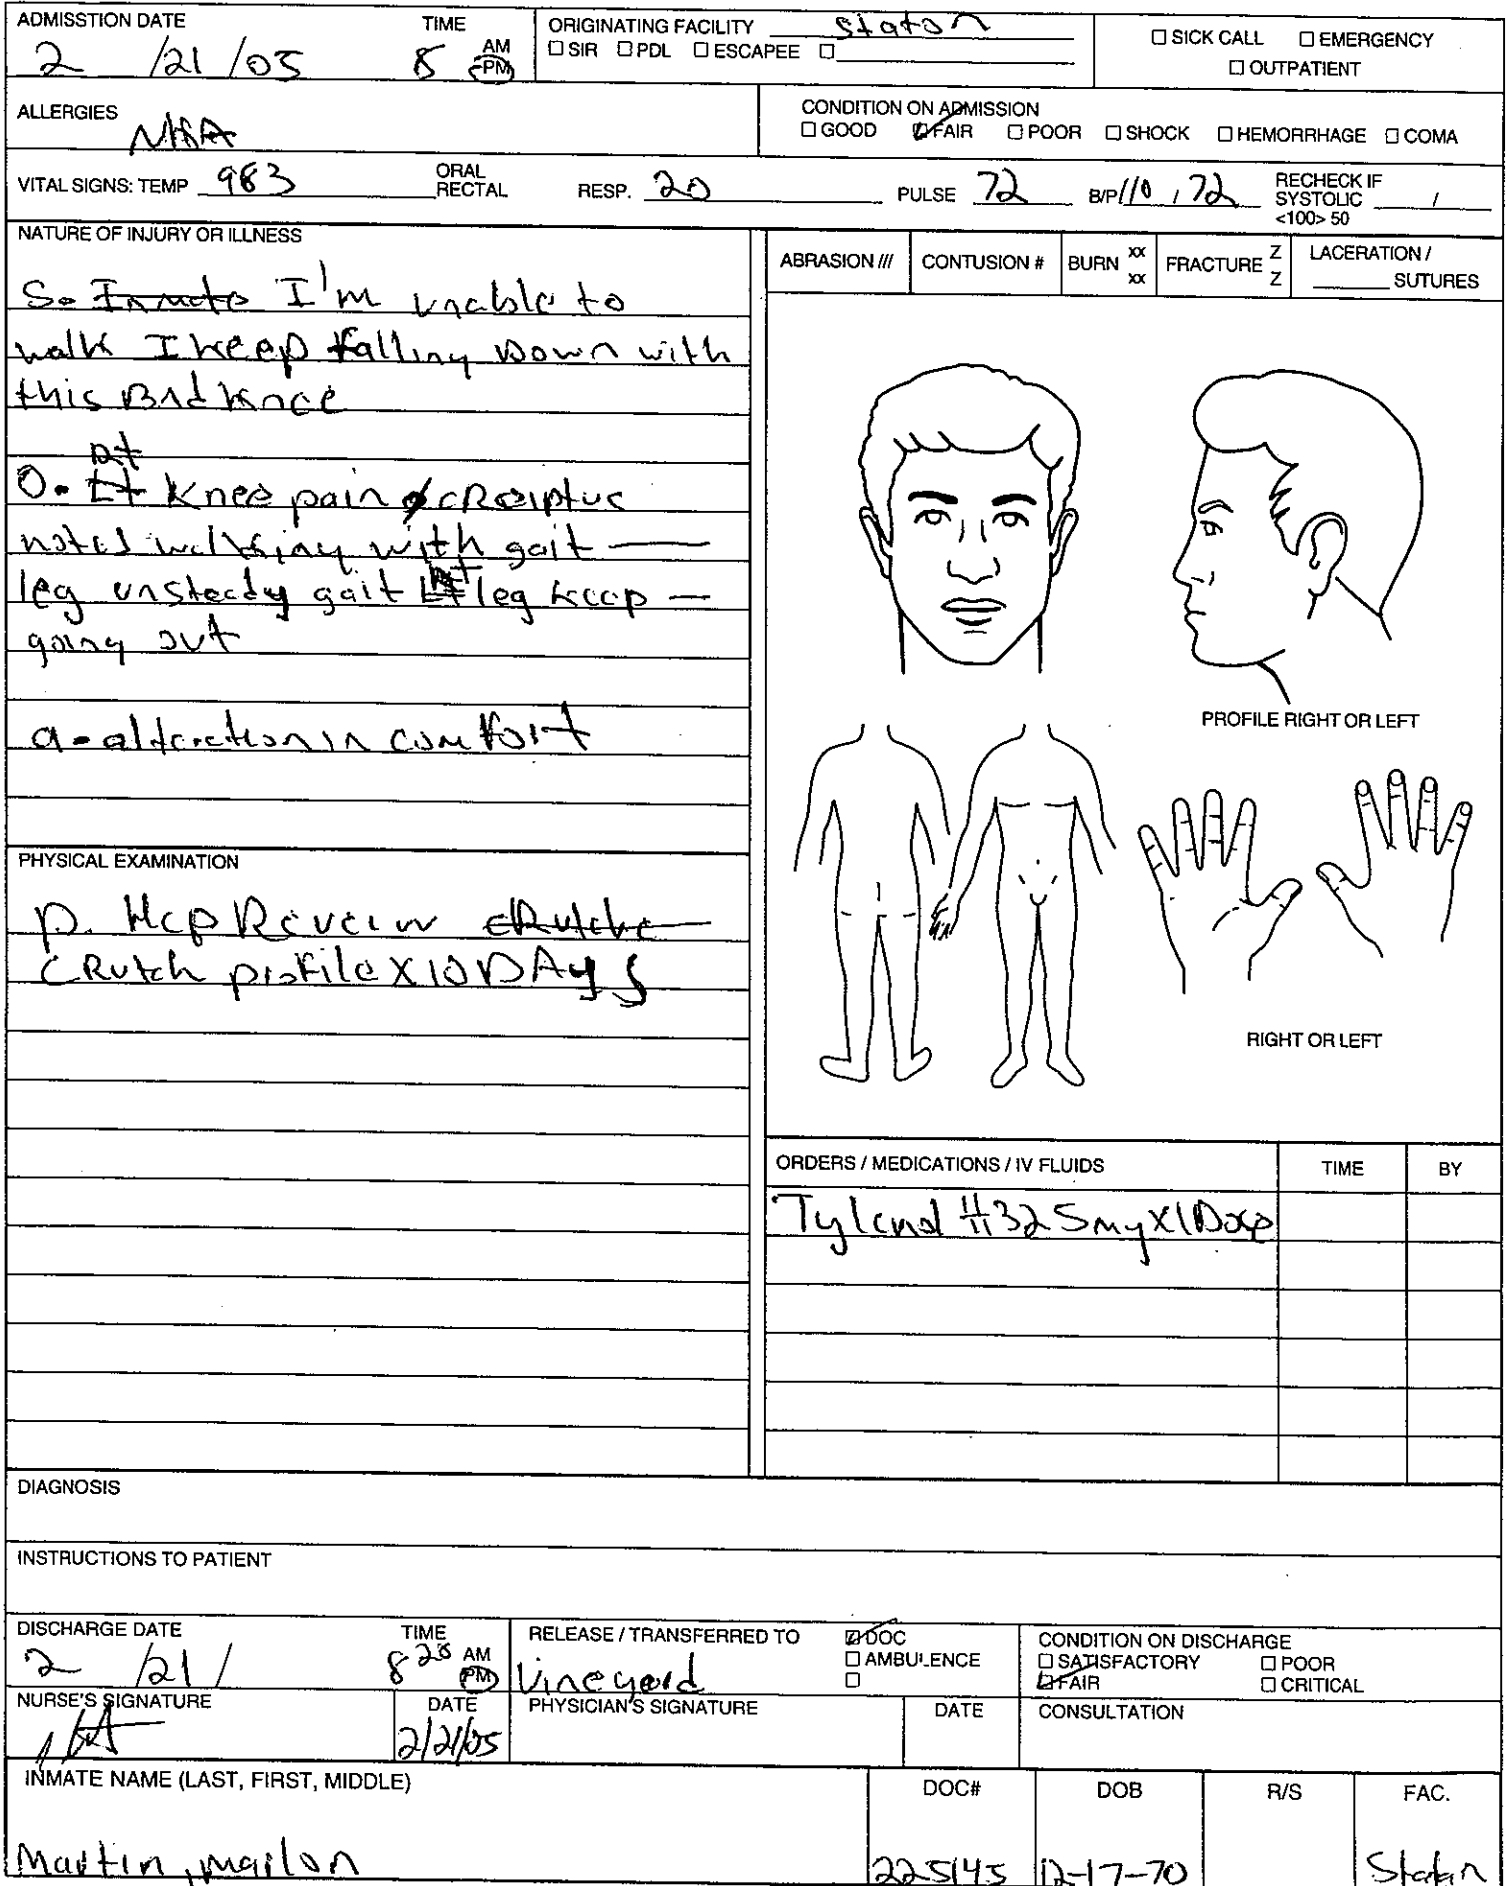 ADMISSTION DATE TIME ORIGINATING FACILITY Staton
□ SICK CALL □ EMERGENCY
2 /21 /05 8 AM PM □ SIR □ PDL □ ESCAPEE □
□ OUTPATIENT
ALLERGIES NKA
CONDITION ON ADMISSION
□ GOOD ☑ FAIR □ POOR □ SHOCK □ HEMORRHAGE □ COMA
VITAL SIGNS: TEMP 983 ORAL RECTAL RESP. 20 PULSE 72 B/P 110 / 72 RECHECK IF SYSTOLIC <100> 50 /
NATURE OF INJURY OR ILLNESS
S. Inmate I'm unable to
walk I keep falling Down with
this Bad knee
Rt
O. Lt Knee pain
noted walking with gait
leg unsteady gait Rt leg keep
going out
a - alteration in comfort
ABRASION /// CONTUSION # BURN xx xx FRACTURE Z Z LACERATION / SUTURES
PROFILE RIGHT OR LEFT
RIGHT OR LEFT
PHYSICAL EXAMINATION
P. Hcp Reveiw cRutche
CRutch profile X 10 DAys
ORDERS / MEDICATIONS / IV FLUIDS TIME BY
Tylenol #325mg X 1 Dose
DIAGNOSIS
INSTRUCTIONS TO PATIENT
DISCHARGE DATE TIME RELEASE / TRANSFERRED TO ☑ DOC
2 /21/ 8 20 AM PM Vineyard □ AMBULENCE
□
CONDITION ON DISCHARGE
□ SATISFACTORY □ POOR
☑ FAIR □ CRITICAL
NURSE'S SIGNATURE DATE PHYSICIAN'S SIGNATURE DATE CONSULTATION
2/21/05
INMATE NAME (LAST, FIRST, MIDDLE) DOC# DOB R/S FAC.
Martin, marlon 225145 12-17-70 Staton